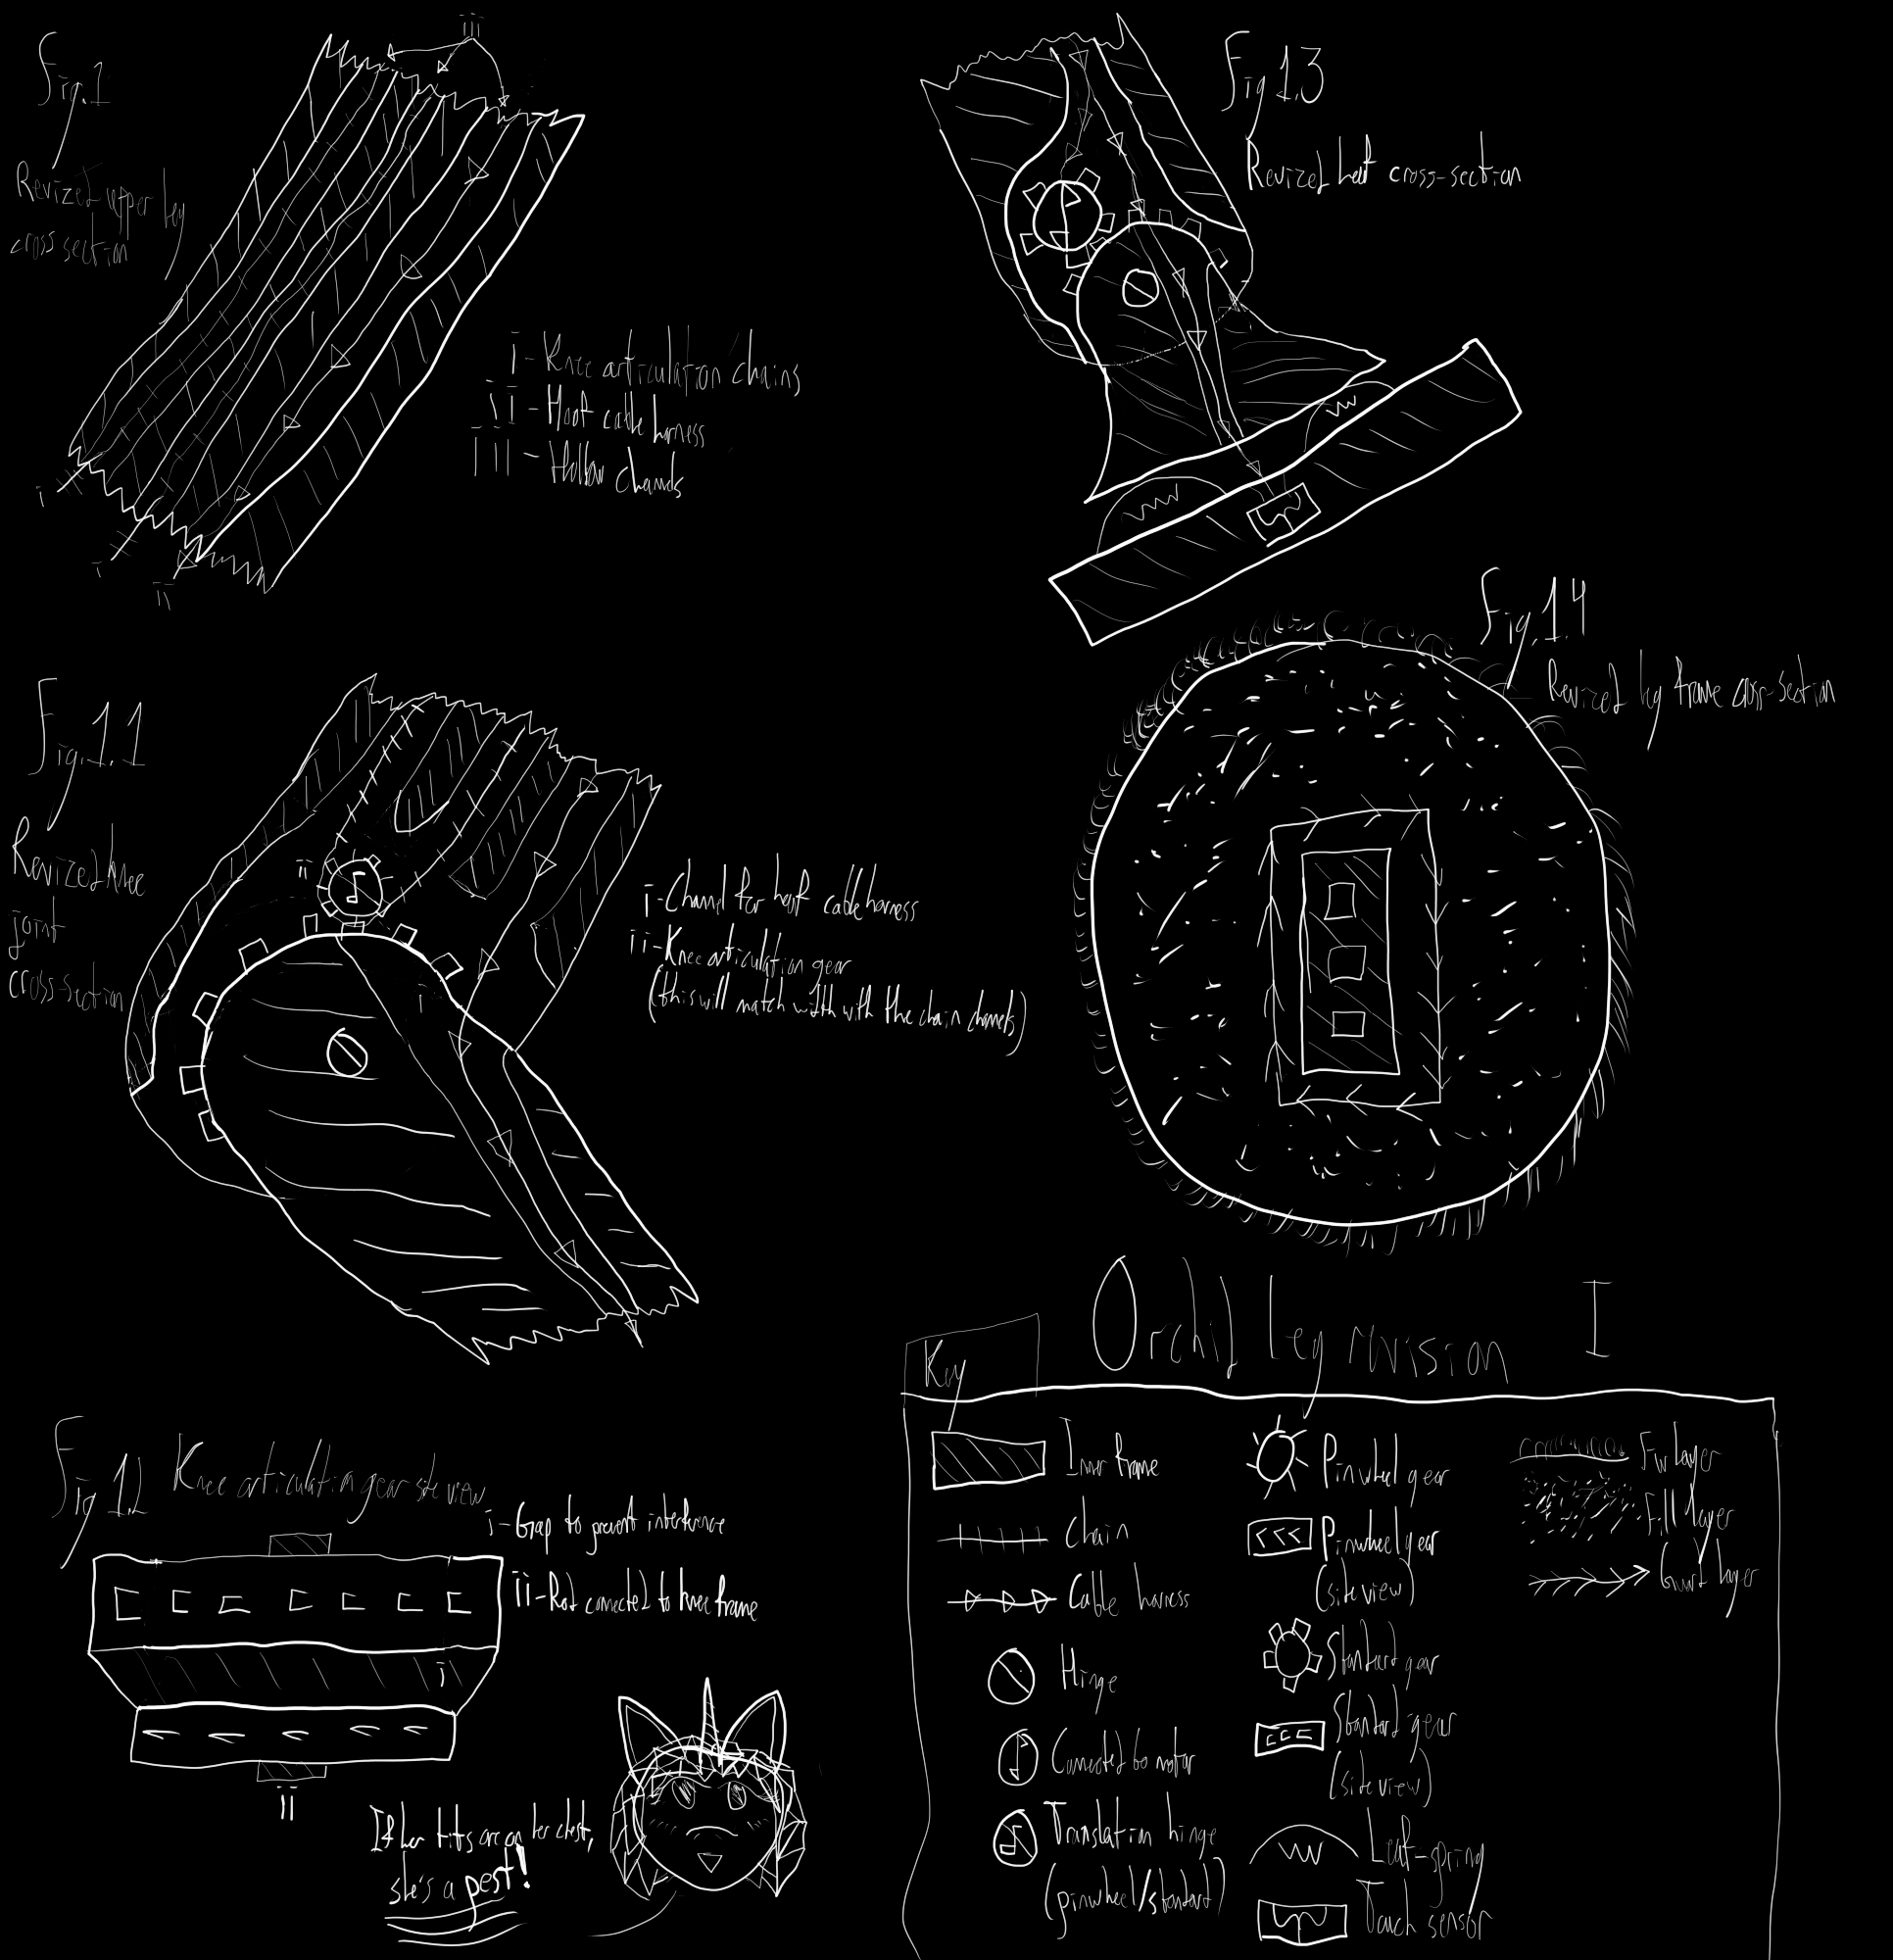 iii
Fig.1
Revized upper leg
cross section
i - Knee articulation chains
ii - Hoof cable harness
iii - Hollow channels
i
i
ii
Fig 1.3
Revized hoof cross-section
Fig.1.4
Revized leg frame cross-section
Fig.1.1
Revized knee
joint
cross-section
ii
i
i - Channel for hoof cable harness
ii - Knee articulation gear
(this will match width with the chain channels)
Fig 1.2 Knee articulation gear side view
i - Gap to prevent interference
ii - Rod connected to knee frame
i
ii
If her tits are on her chest,
she's a pest!
Orchid leg revision I
Key
Inner frame
Chain
Cable harness
Hinge
Connected to motor
Translation hinge
(pinwheel/standard)
Pinwheel gear
Pinwheel gear
(side view)
Standard gear
Standard gear
(side view)
Leaf-spring
Touch sensor
Fur layer
Fill layer
Guard layer